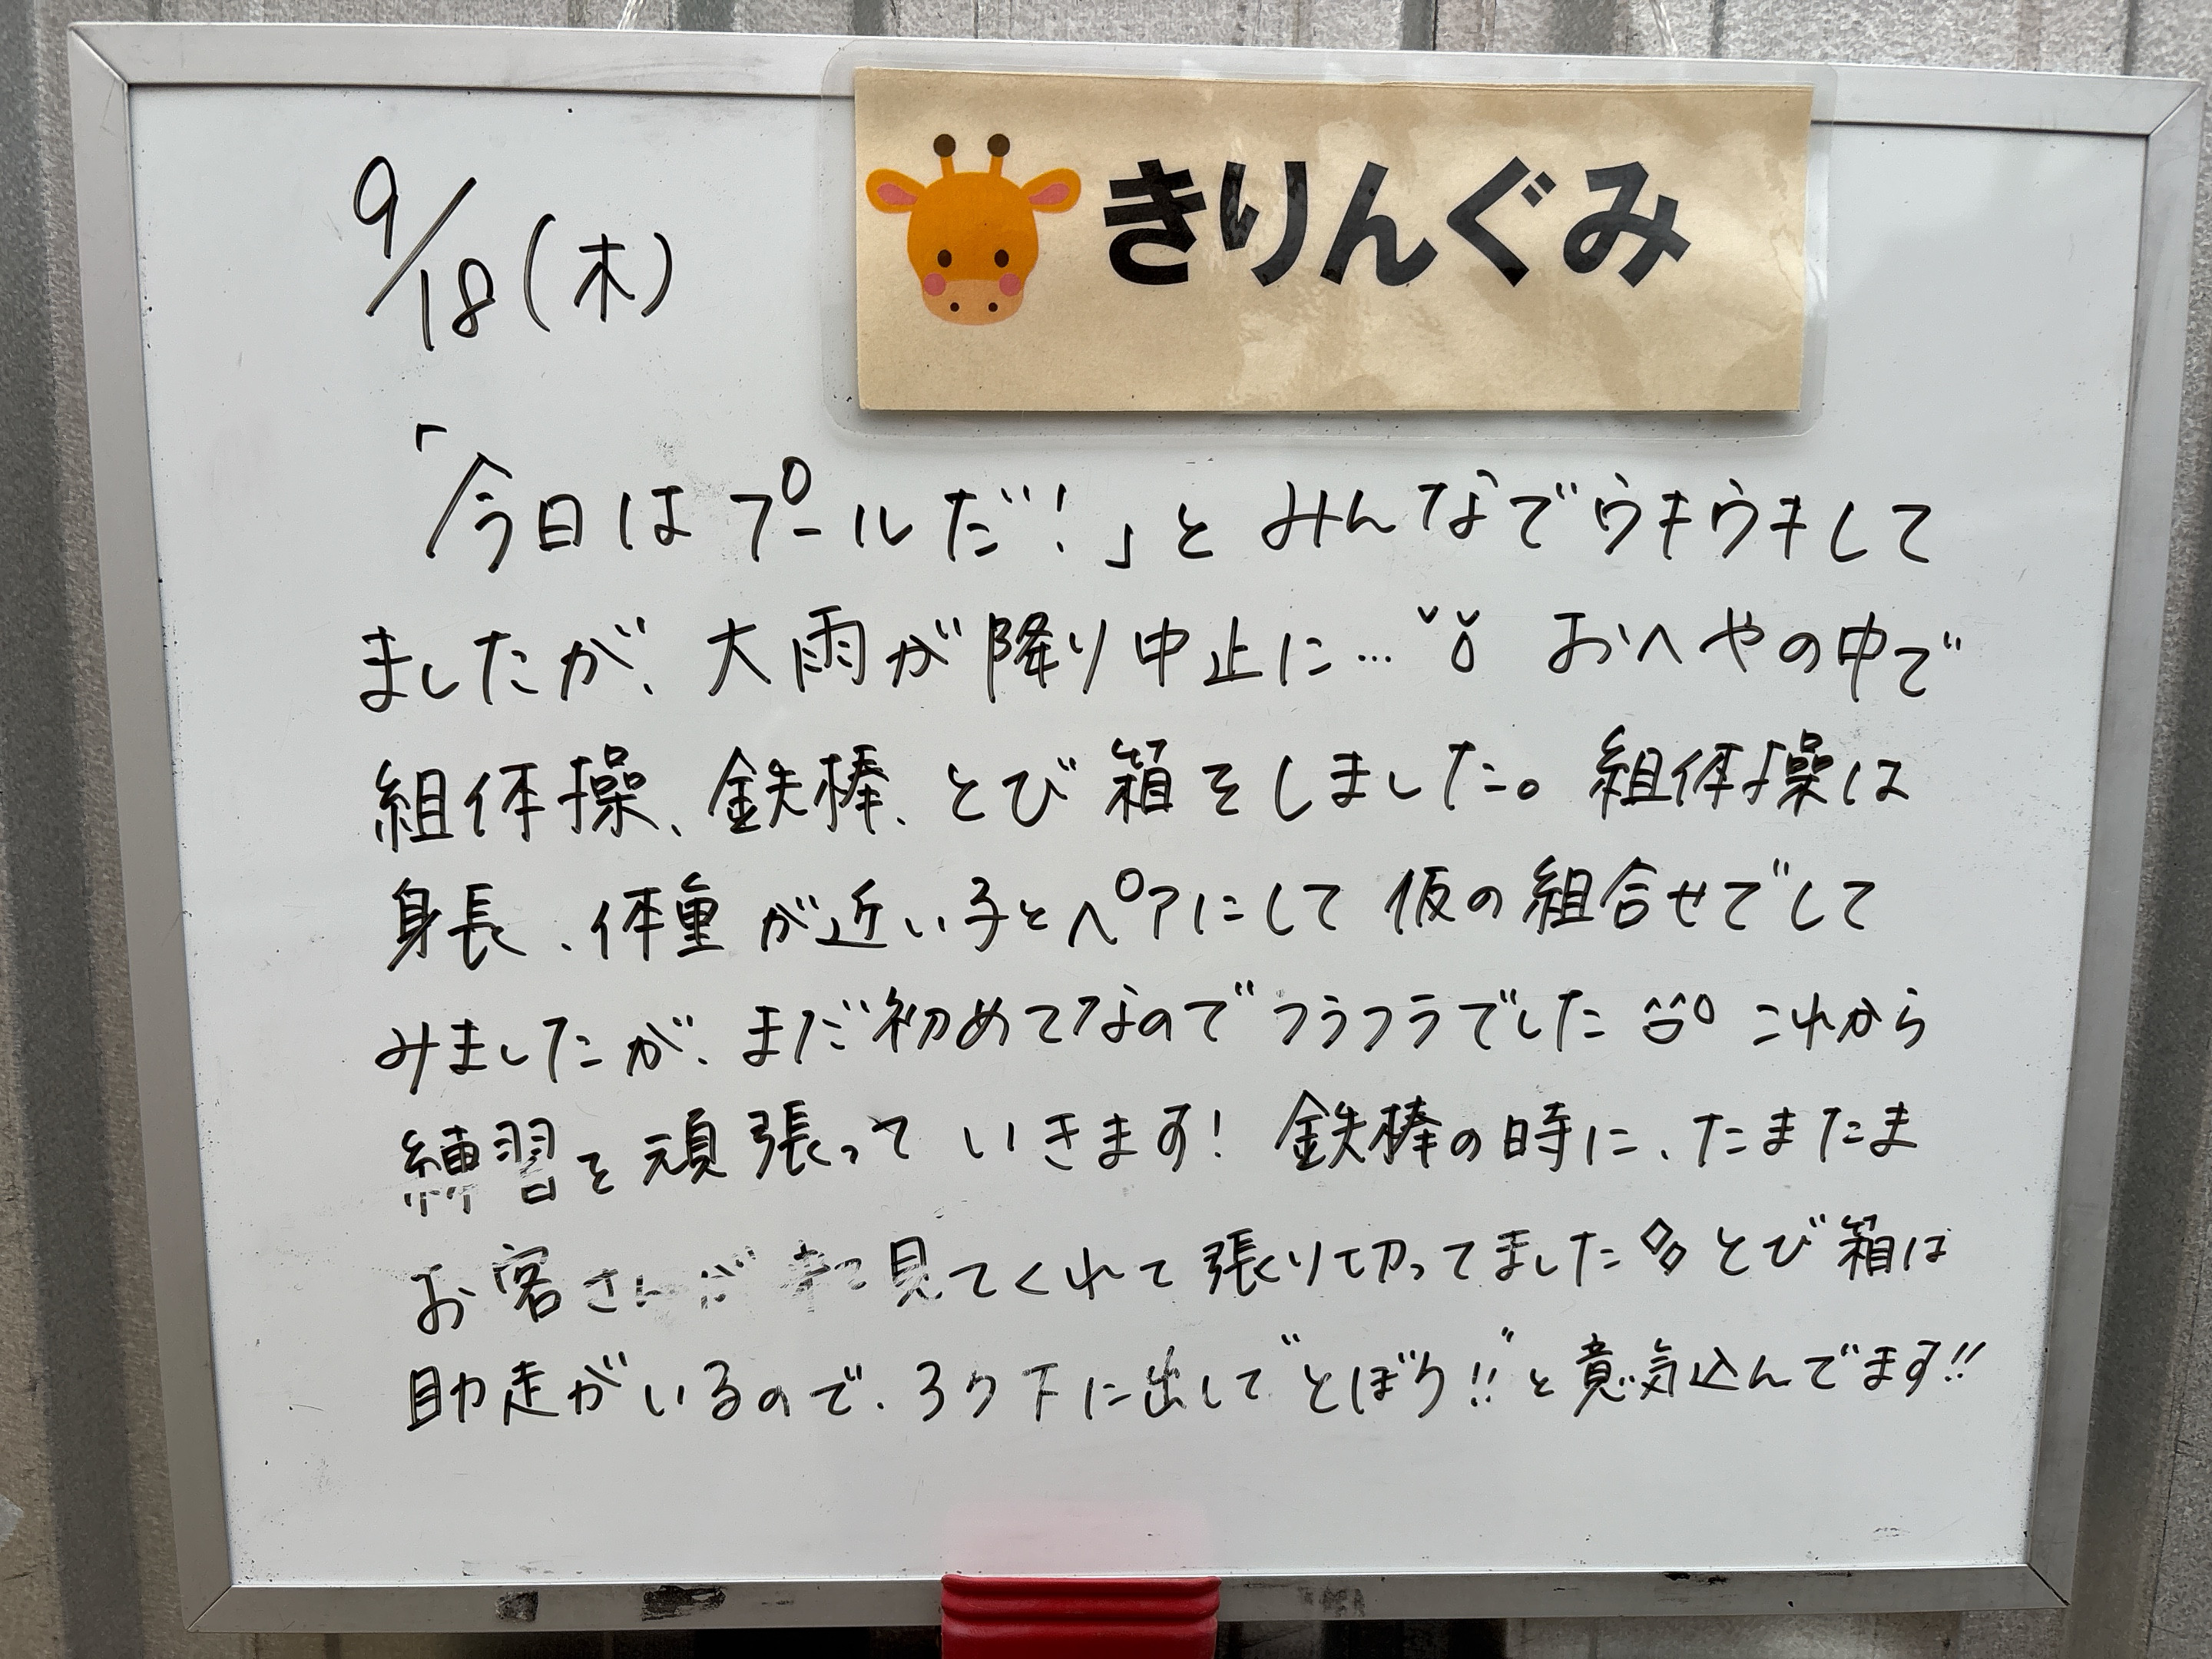 きりんぐみ
9/18(木)
「今日はプールだ!」とみんなでウキウキして
ましたが、大雨が降り中止に… おへやの中で
組体操、鉄棒、とび箱をしました。組体操は
身長、体重が近い子とペアにして仮の組合せでして
みましたが、まだ初めてなのでフラフラでした これから
練習を頑張っていきます! 鉄棒の時に、たまたま
お客さんが 見てくれて張り切ってました とび箱は
助走がいるので、ろう下に出して"とぼう!!"と意気込んでます!!